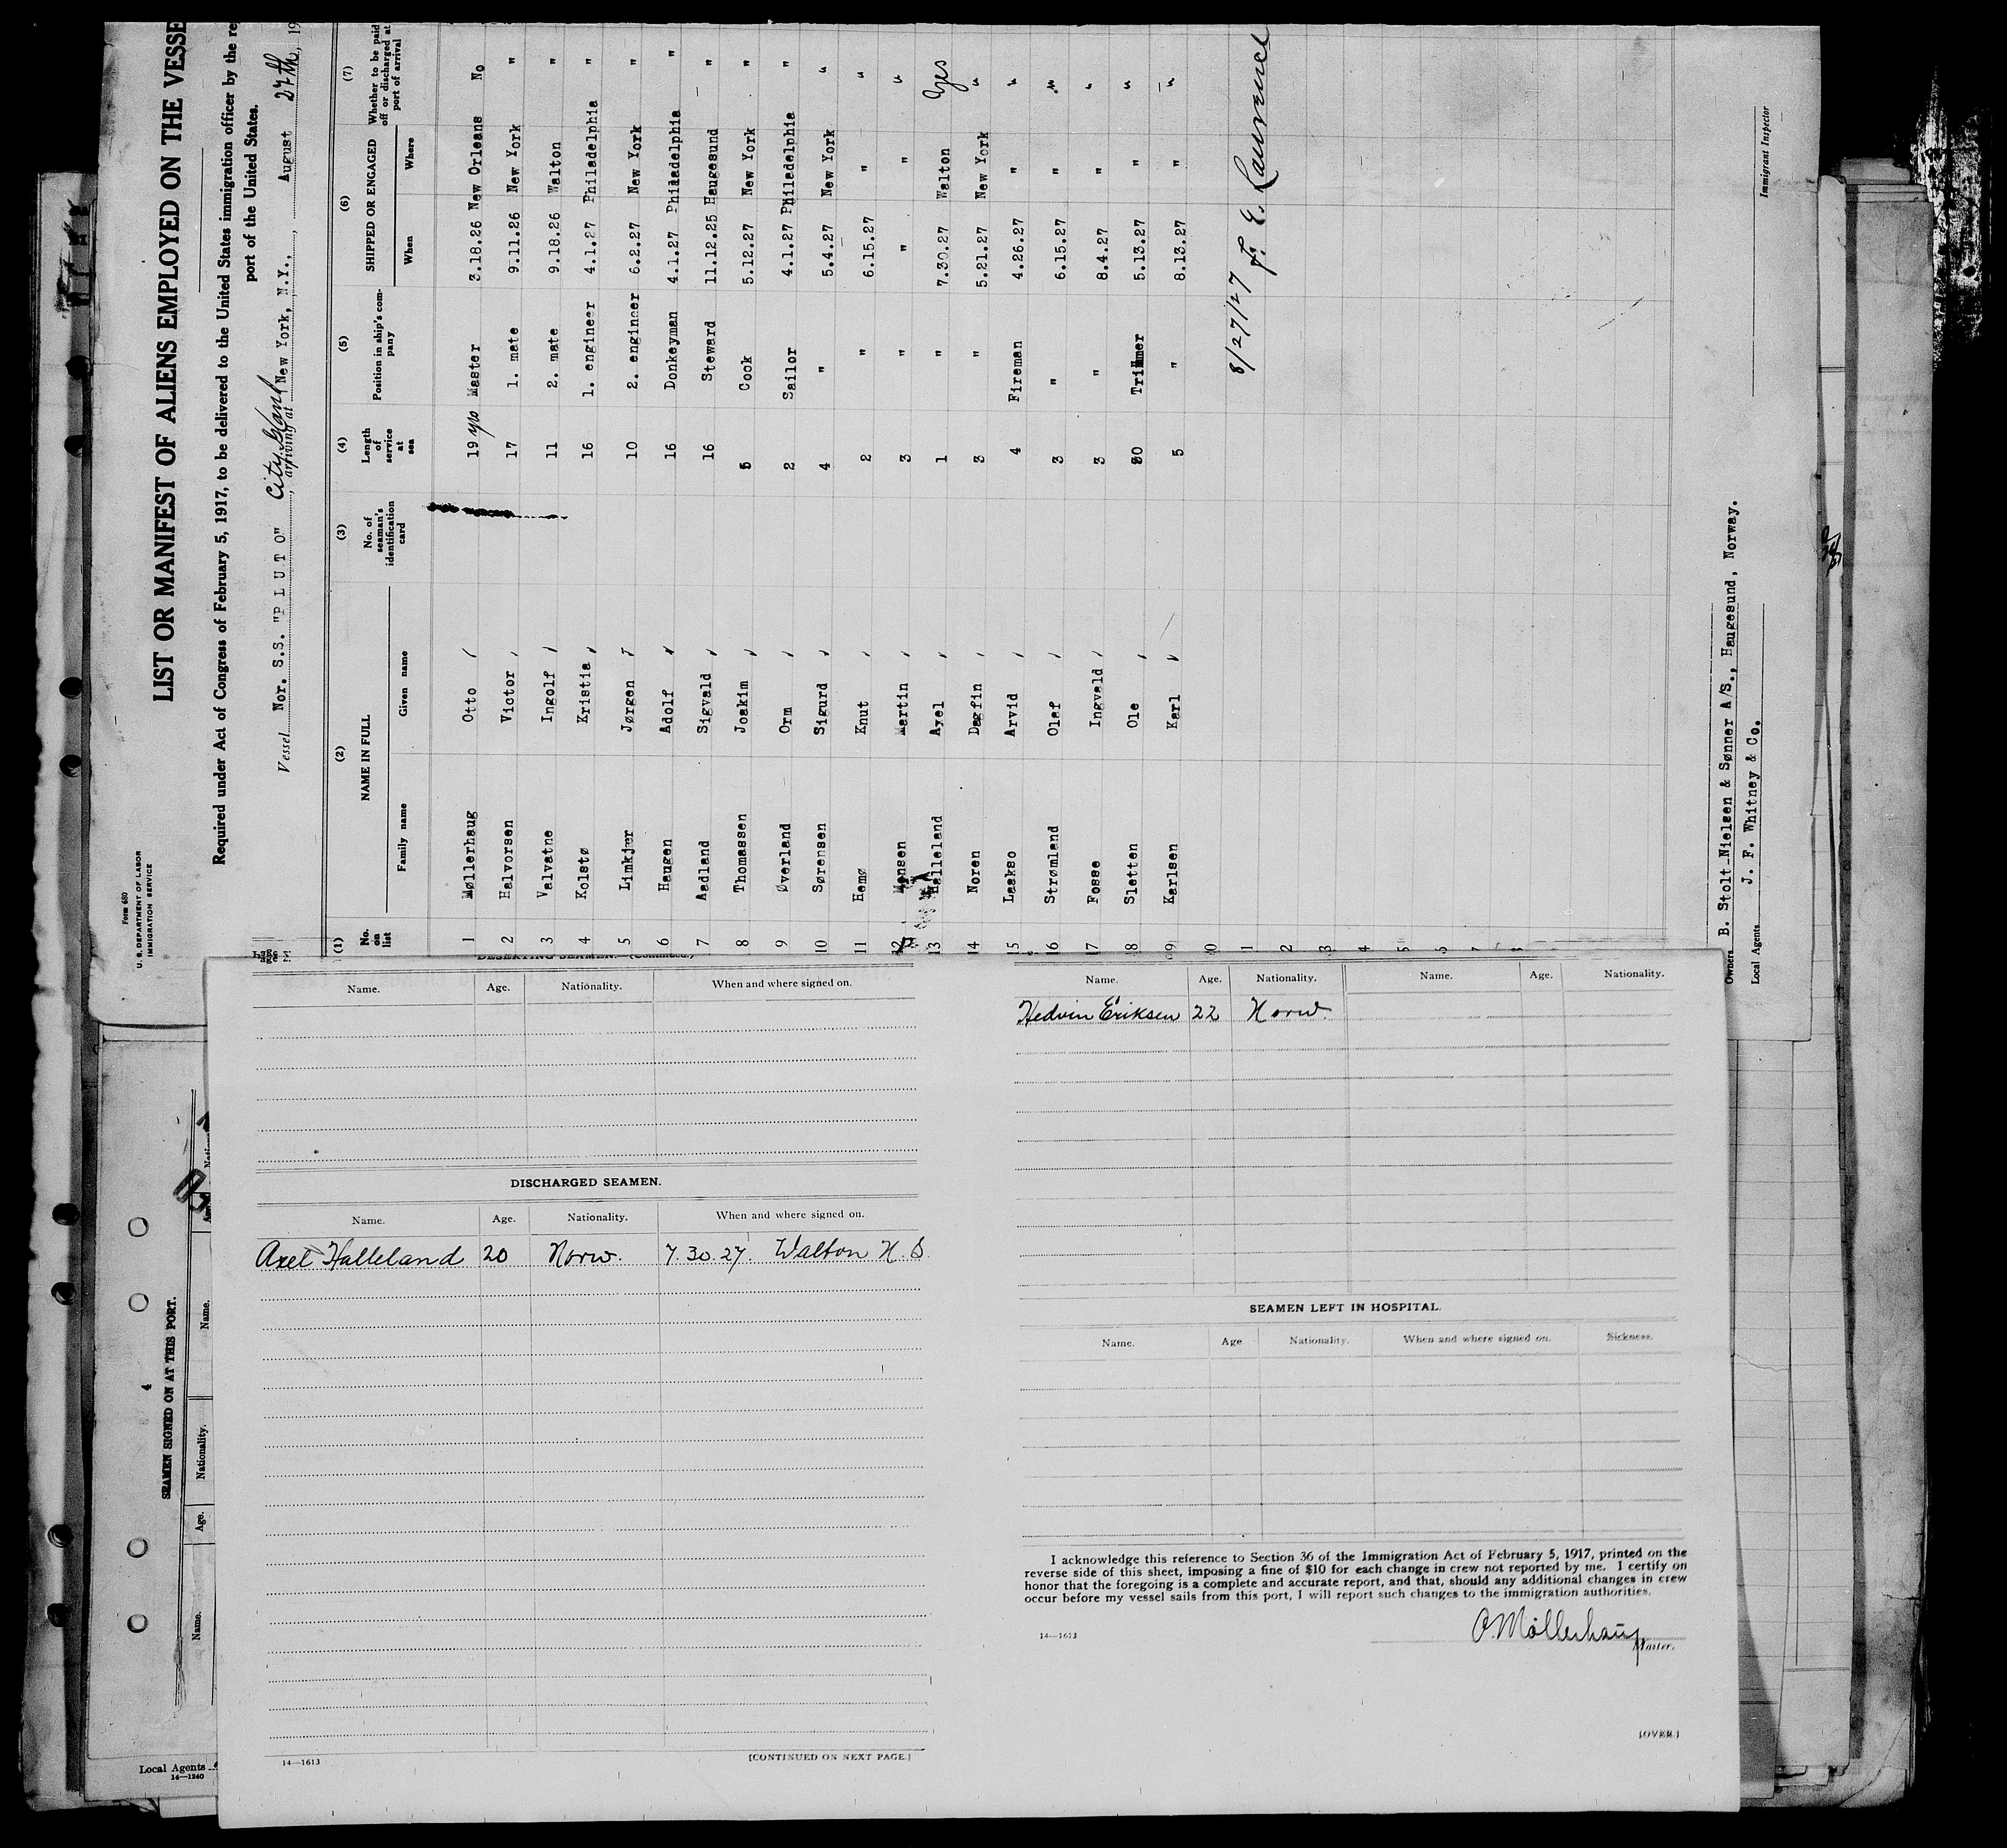 Form 680
U. S. DEPARTMENT OF LABOR
IMMIGRATION SERVICE
LIST OR MANIFEST OF ALIENS EMPLOYED ON THE VESSE
Required under Act of Congress of February 5, 1917, to be delivered to the United States immigration officer by the re
port of the United States.
Vessel Nor. S.S. "P L U T O" arriving at New York, N.Y., August 27th, 19
(1) (2) (3) (4) (5) (6) (7)
No. on list NAME IN FULL No. of seaman's identification card Length of service at sea Position in ship's company SHIPPED OR ENGAGED Whether to be paid off or discharged at port of arrival
Family name Given name When Where
1 Møllerhaug Otto 19 yrs Master 3.18.26 New Orleans No
2 Halvorsen Victor 17 1. mate 9.11.26 New York "
3 Valvatne Ingolf 11 2. mate 9.18.26 Walton "
4 Kolstø Kristia 16 1. engineer 4.1.27 Philadelphia "
5 Limkjær Jørgen 10 2. engineer 6.2.27 New York "
6 Haugen Adolf 16 Donkeyman 4.1.27 Philadelphia "
7 Aadland Sigvald 16 Steward 11.12.25 Haugesund "
8 Thomassen Joakim 5 Cook 5.12.27 New York "
9 Øverland Orm 2 Sailor 4.1.27 Philadelphia "
10 Sørensen Sigurd 4 " 5.4.27 New York "
11 Hemø Knut 2 " 6.15.27 " "
12 Martin 3 " " " "
13 Halleland Axel 1 " 7.30.27 Walton yes
14 Noren Dagfin 3 " 5.21.27 New York "
15 Laakso Arvid 4 Fireman 4.26.27 " "
16 Strømland Olaf 3 " 6.15.27 " "
17 Fosse Ingvald 3 " 8.4.27 " "
18 Sletten Ole Trimmer 5.13.27 " "
19 Karlsen Karl 5 " 8.13.27 " "
8/27/27 F. E. Laurence
Immigrant Inspector
Owners B. Stolt-Nielsen & Sønner A/S., Haugesund, Norway.
Local Agents J. F. Whitney & Co.
4
SEAMEN SIGNED ON AT THIS PORT.
Name. Age. Nationality. Name.
Local Agents
14—1240
DESERTING SEAMEN.—(Continued.)
Name. Age. Nationality. When and where signed on.
DISCHARGED SEAMEN.
Name. Age. Nationality. When and where signed on.
Axel Halleland 20 Norw. 7.30.27. Walton N.S.
14—1613 [CONTINUED ON NEXT PAGE.]
Name. Age. Nationality. Name. Age. Nationality.
Hedvin Eriksen 22 Norw.
SEAMEN LEFT IN HOSPITAL.
Name. Age Nationality. When and where signed on. Sickness.
I acknowledge this reference to Section 36 of the Immigration Act of February 5, 1917, printed on the
reverse side of this sheet, imposing a fine of $10 for each change in crew not reported by me. I certify on
honor that the foregoing is a complete and accurate report, and that, should any additional changes in crew
occur before my vessel sails from this port, I will report such changes to the immigration authorities.
O. Möllerhaug
14—1613 Master.
[OVER.]